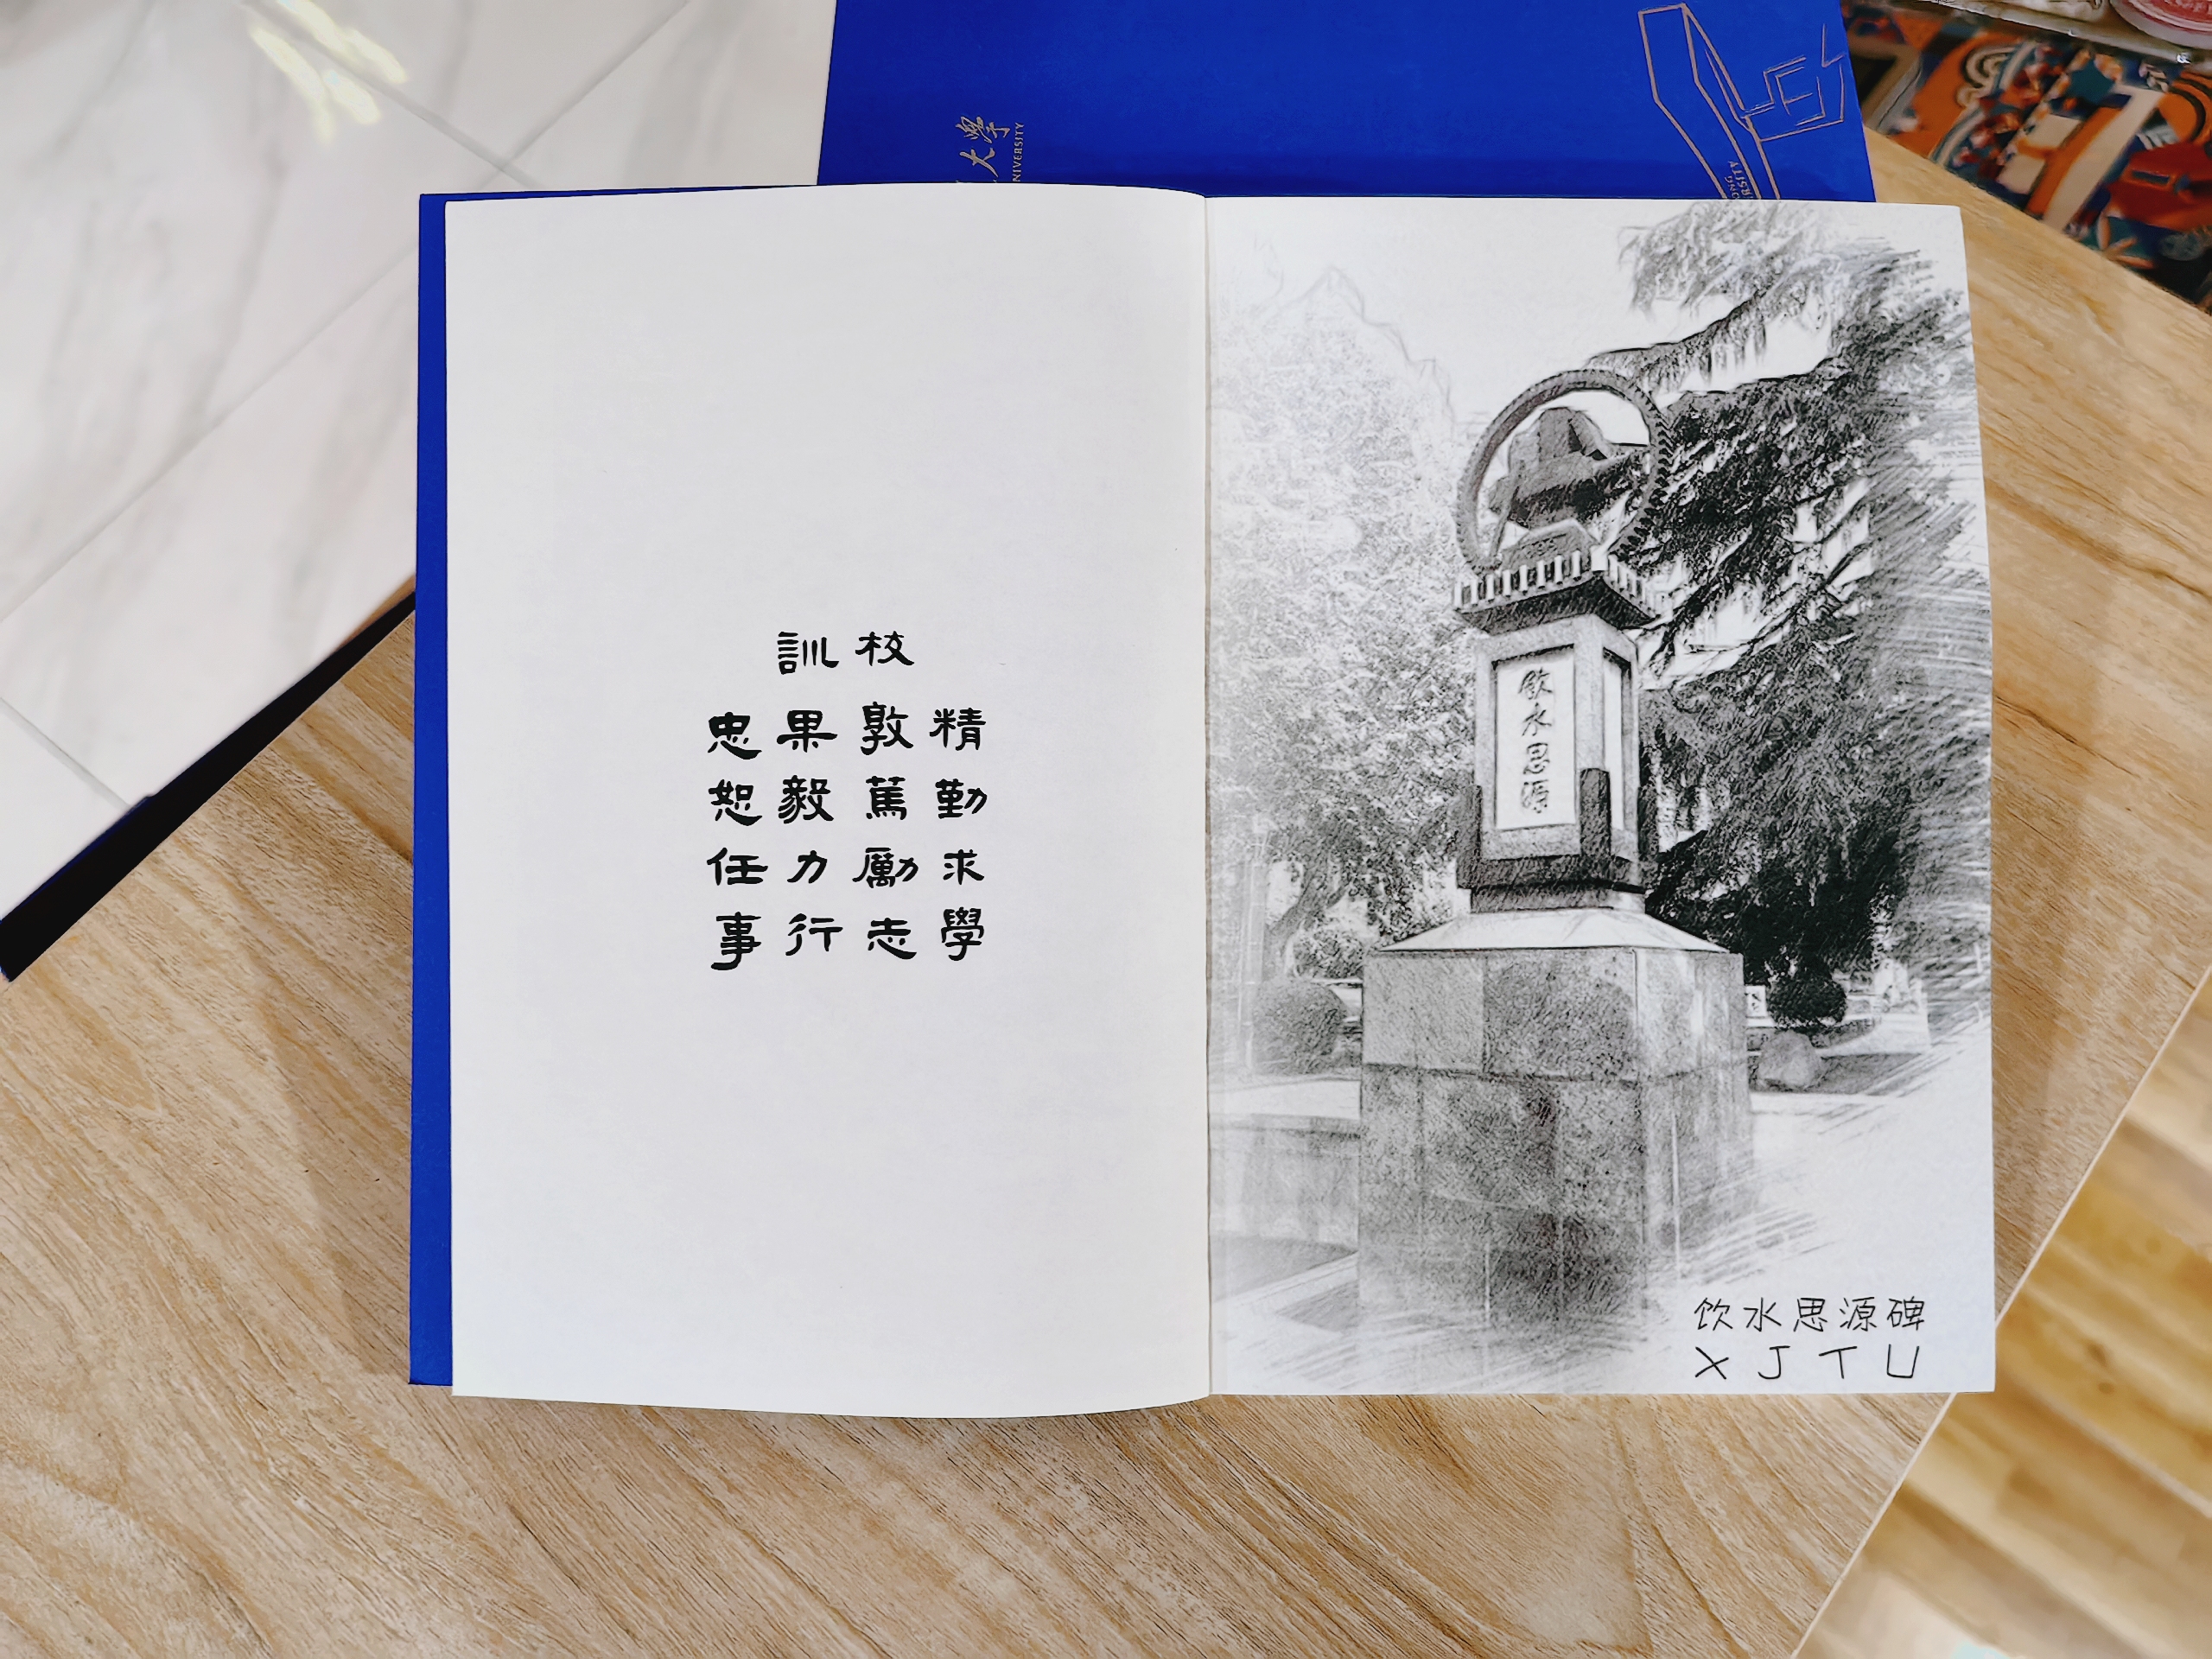 校訓
精勤求學
敦篤勵志
果毅力行
忠恕任事
飲水思源
饮水思源碑
XJTU
大學
UNIVERSITY